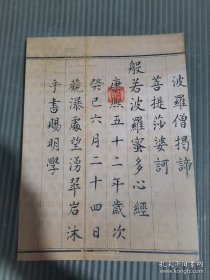 波羅僧揭諦
菩提莎婆訶
般若波羅蜜多心經
康熙五十二年歲次
癸巳六月二十四日
瀑處望湧翠岩沐
手書賜明學